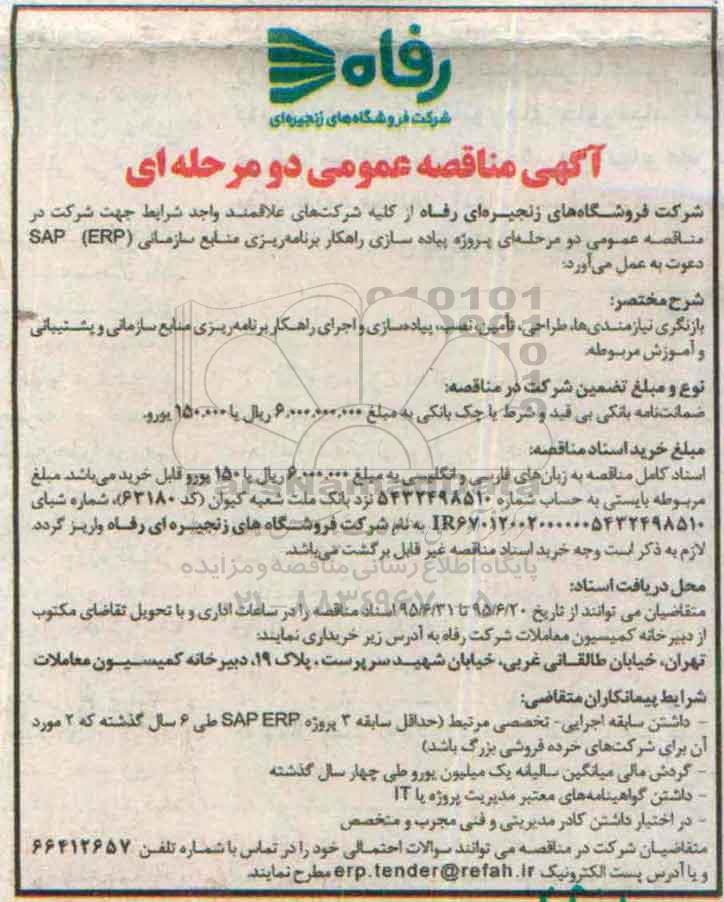 رفاه
شرکت فروشگاه‌های زنجیره‌ای
آگهی مناقصه عمومی دو مرحله ای
شرکت فروشگاه‌های زنجیره‌ای رفاه از کلیه شرکت‌های علاقمند واجد شرایط جهت شرکت در
مناقصه عمومی دو مرحله‌ای پروژه پیاده سازی راهکار برنامه‌ریزی منابع سازمانی (ERP) SAP
دعوت به عمل می‌آورد:
شرح مختصر:
بازنگری نیازمندی‌ها، طراحی، تأمین، نصب، پیاده‌سازی و اجرای راهکار برنامه‌ریزی منابع سازمانی و پشتیبانی
و آموزش مربوطه.
نوع و مبلغ تضمین شرکت در مناقصه:
ضمانت‌نامه بانکی بی قید و شرط یا چک بانکی به مبلغ ۶,۰۰۰,۰۰۰,۰۰۰ ریال یا ۱۵۰,۰۰۰ یورو.
مبلغ خرید اسناد مناقصه:
اسناد کامل مناقصه به زبان‌های فارسی و انگلیسی به مبلغ ۶,۰۰۰,۰۰۰ ریال یا ۱۵۰ یورو قابل خرید می‌باشد. مبلغ
مربوطه بایستی به حساب شماره ۵۴۳۲۴۹۸۵۱۰ نزد بانک ملت شعبه کیوان (کد ۶۳۱۸۰)، شماره شبای
IR۶۷۰۱۲۰۰۲۰۰۰۰۰۰۵۴۳۲۴۹۸۵۱۰ به نام شرکت فروشگاه های زنجیره ای رفاه واریز گردد.
لازم به ذکر است وجه خرید اسناد مناقصه غیر قابل برگشت می‌باشد.
پایگاه اطلاع رسانی مناقصه و مزایده
محل دریافت اسناد:
متقاضیان می توانند از تاریخ ۹۵/۶/۲۰ تا ۹۵/۶/۳۱ اسناد مناقصه را در ساعات اداری و با تحویل تقاضای مکتوب
از دبیرخانه کمیسیون معاملات شرکت رفاه به آدرس زیر خریداری نمایند:
تهران، خیابان طالقانی غربی، خیابان شهید سرپرست، پلاک ۱۹، دبیرخانه کمیسیون معاملات
شرایط پیمانکاران متقاضی:
- داشتن سابقه اجرایی- تخصصی مرتبط (حداقل سابقه ۳ پروژه SAP ERP طی ۶ سال گذشته که ۲ مورد
آن برای شرکت‌های خرده فروشی بزرگ باشد)
- گردش مالی میانگین سالیانه یک میلیون یورو طی چهار سال گذشته
- داشتن گواهینامه‌های معتبر مدیریت پروژه یا IT
- در اختیار داشتن کادر مدیریتی و فنی مجرب و متخصص
متقاضیان شرکت در مناقصه می توانند سوالات احتمالی خود را در تماس با شماره تلفن ۶۶۴۱۲۶۵۷
و یا آدرس پست الکترونیک erp.tender@refah.ir مطرح نمایند.